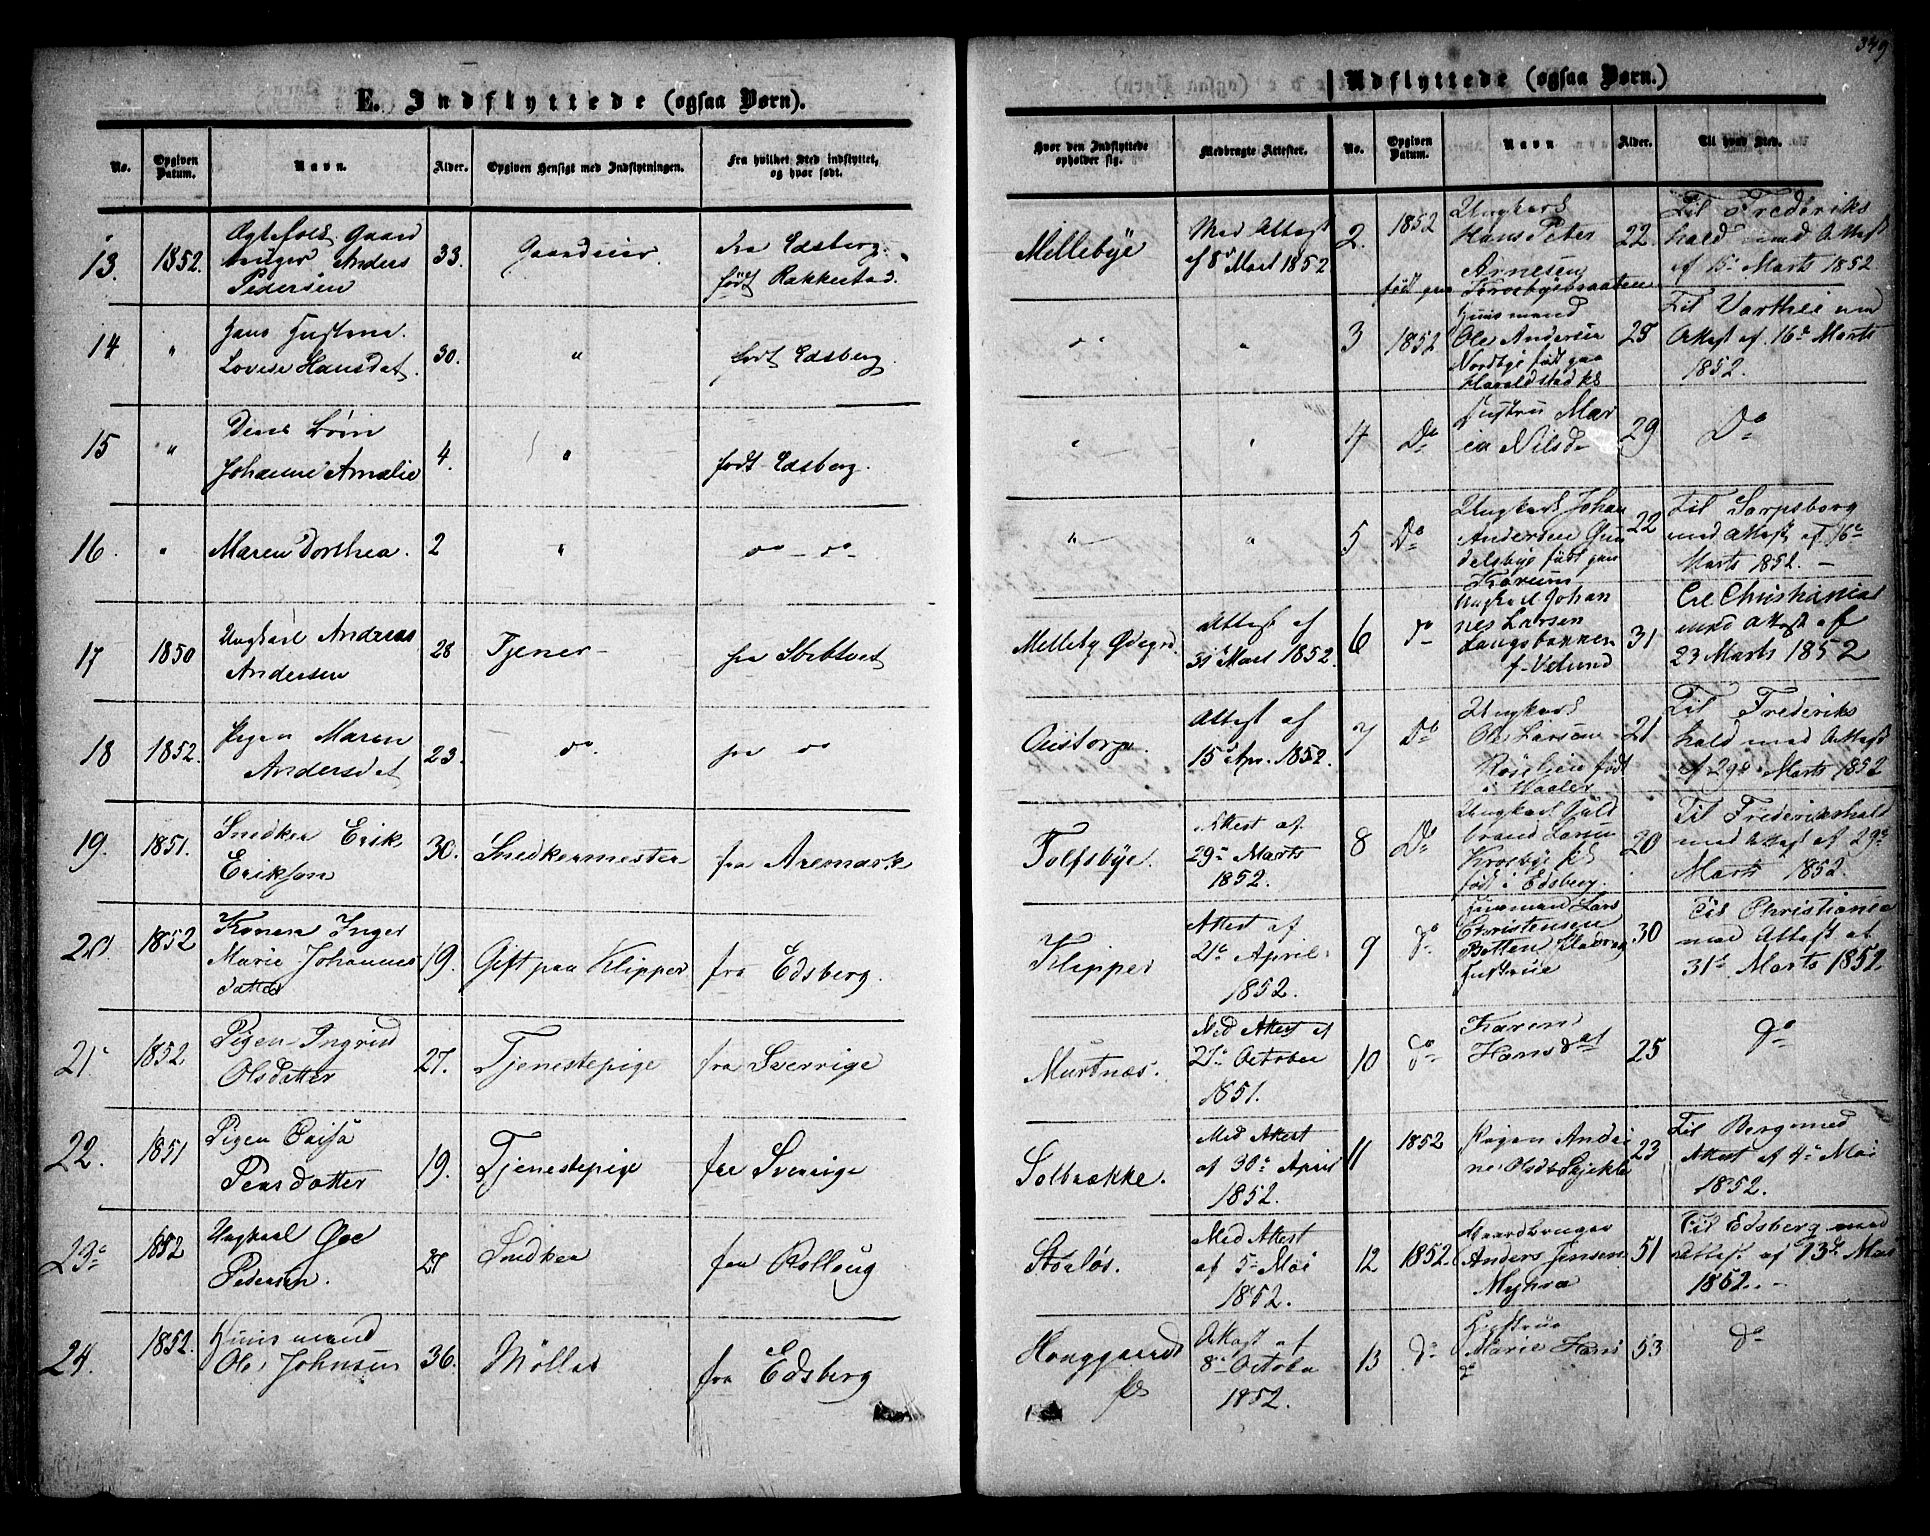 349
E. Indflyttede (ogsaa Børn).
No.
Opgiven Datum.
Navn.
Alder.
Opgiven Hensigt med Indflytningen.
Fra hvilket Sted indflyttet, og hvor født.
13. 1852. Ægtefolk Gaard
bruger Anders 33. Gaardeier. fra Edsberg.
Pedersen født Rakkestad.
14 " Hans Hustrue
Lovise Hansdat. 30. " født Edsberg.
15 " Deres Børn
Johanne Amalie 4. " født Edsberg.
16. " Maren Dorthea. 2 " do - do
17 1850 Ungkarl Andreas 28 Tjener fra
Andersen
18 1852. Pigen Maren 23. do. fra do
Andersdat
19. 1851. Snedker Erik 30. Snedkermester fra Aremark
Erikson
20. 1852 Konen Inger
Marie Johannes 19. Gift paa Klipper fra Edsberg.
datter
21 1852 Pigen Ingrid 27. Tjenestepige fra Sverrige
Olsdatter
22. 1851 Pigen Caisa 19. Tjenestepige fra Sverrige
Persdatter
23 1852 Ungkarl 27 Snedker fra Rolloug
Pedersen.
24. 1852. Huusmand
Ole Johnsen 36. Møller fra Edsberg
Udflyttede (ogsaa Børn.)
Hvor den Indflyttede opholder sig.
Medbragte Attester.
No.
Opgiven Datum.
Navn.
Alder.
Til hvad Sted.
Mellebye Med Attest 2. 1852 Ungkarl Til Frederiks
af 8de Mart 1852. Hans Peter 22. hald med Attest
Arnesen af 15de Marts 1852.
født paa Krosbybraaten
" " 3 1852 Huusmand Til
Ole Andersen 25 Attest af 16de Marts
Nordbye født paa 1852.
Haraldstad
" " 4 Do Hustru Mar 29 Do
ia Nilsd
" " 5 Do Ungkarl Johan 22 Til Sarpsborg
Andersen Gun med Attest af 16de
delsbye født paa Marts 1852. -
Melleby Ødegrd. Attest af 6 do Ungkarl Johan Til Christiania
31 Mart 1852. nes Larsen 31 med Attest af
23 Marts 1852
Attest af 7 Do Ungkarl 21 Til Frederiks
15 Apr. 1852. Ole Larsen hald med Attest
født af 29de Marts 1852
i Waaler
Tolfsbye. Attest af 8 Do Ungkarl Til Frederikshald
29de Marts brand Larsen 20 med Attest af 29de
1852. Krosbye Marts 1852.
født i Edsberg.
Klipper Attest af 9 do Huusmand Lars Til Christiania
21de April Christensen 30 med Attest af
1852. Hustrue 31de Marts 1852.
Murtnæs. Med Attest af 10 do Karen 25 do
27de October Hansdat
1851.
Solbrække. Med Attest 11 1852 Pigen Andri 23 Til Berg med
af 30de April ne Olsd Attest af 4de Mai
1852. 1852.
Med Attest 12 1852. Gaardbruger Til Edsberg med
af 5de Mai Anders Jensen 51 Attest. af 13de Mai
1852. Myhra 1852. -
Attest af 13 do Hustrue do
8de October Marie Hans 53
1852. d